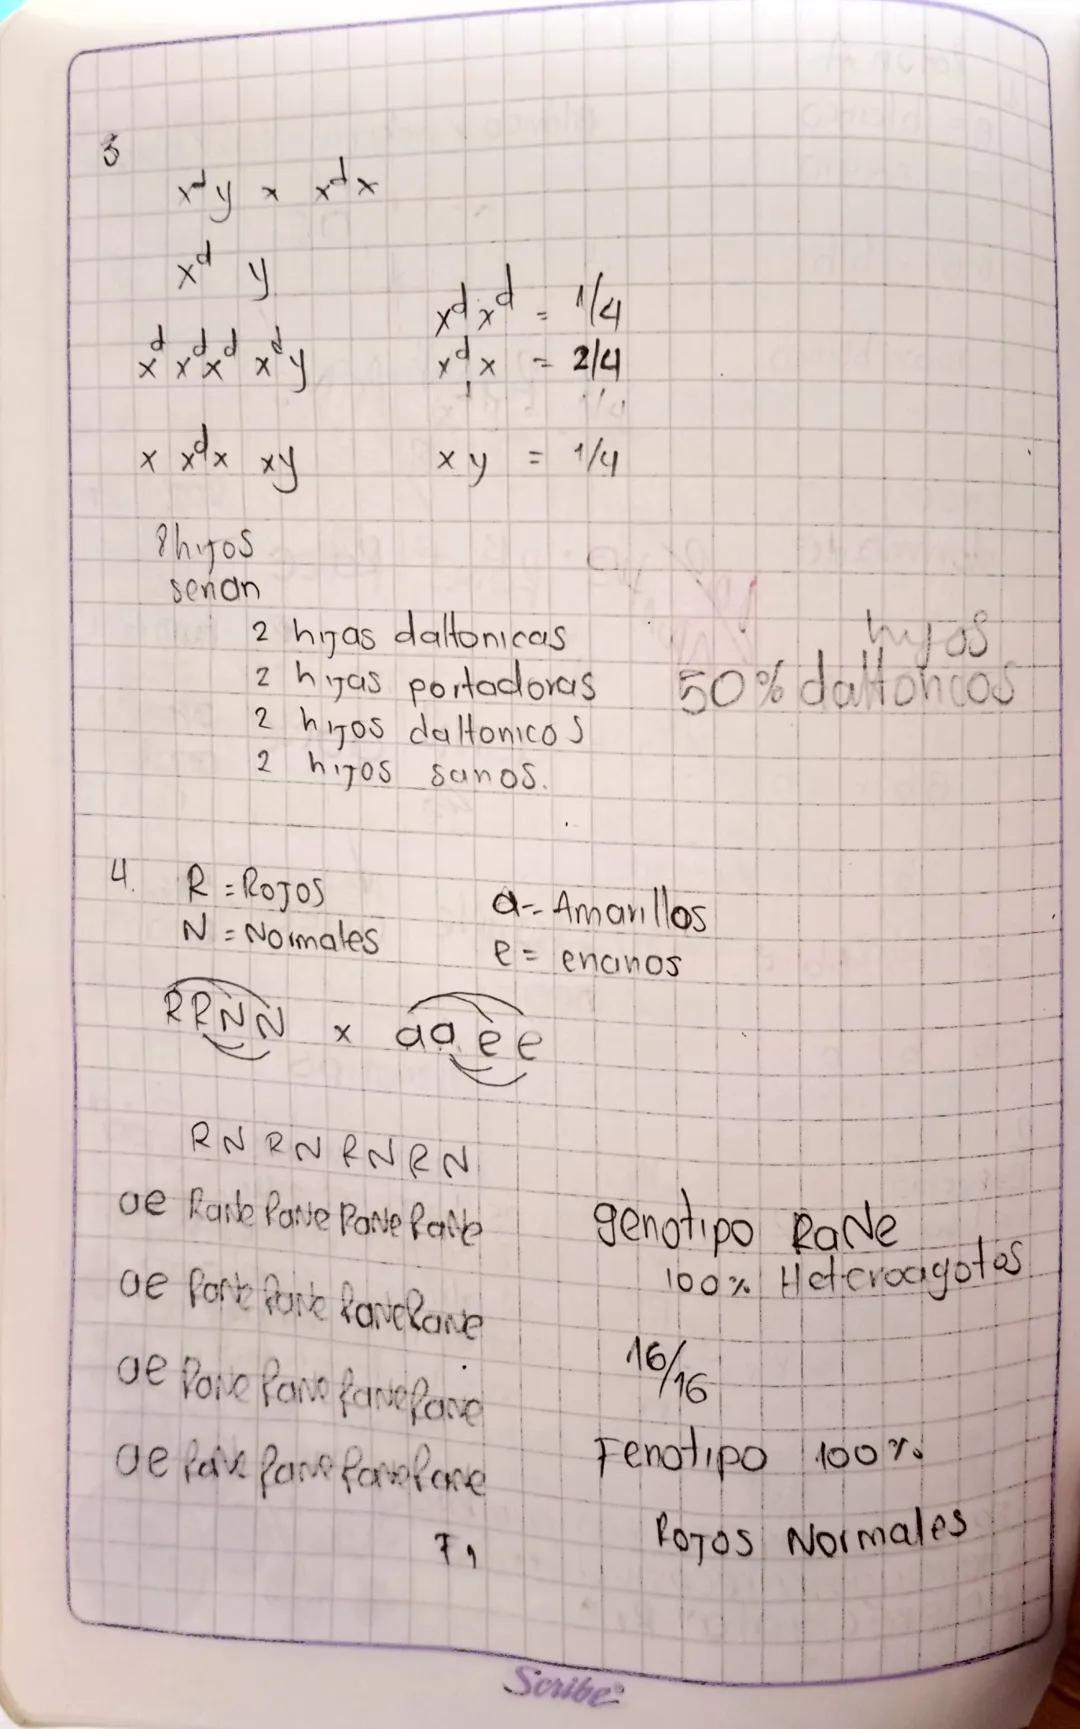 3
x^d y x x^d x
x^d y
x^d x^d = 1/4
x^d x^d x^d x^d y
x^d x = 2/4
x x^d x xy
xy = 1/4
8 hijos
serian
2 hijas daltonicas
2 hijas portadoras
2 hijos daltonicos
2 hijos sanos.
hijos
50% daltonicos
4. R = Rojos
a = Amarillos
N = Normales
e = enanos
RRNN x aa ee
RN RN RN RN
ae RaNe RaNe RaNe RaNe
ae RaNe RaNe RaNe RaNe
ae RaNe RaNe RaNe RaNe
ae RaNe RaNe RaNe RaNe
F1
genotipo RaNe
100% Heterocigotos
16/16
Fenotipo 100%
Rojos Normales
Scribe